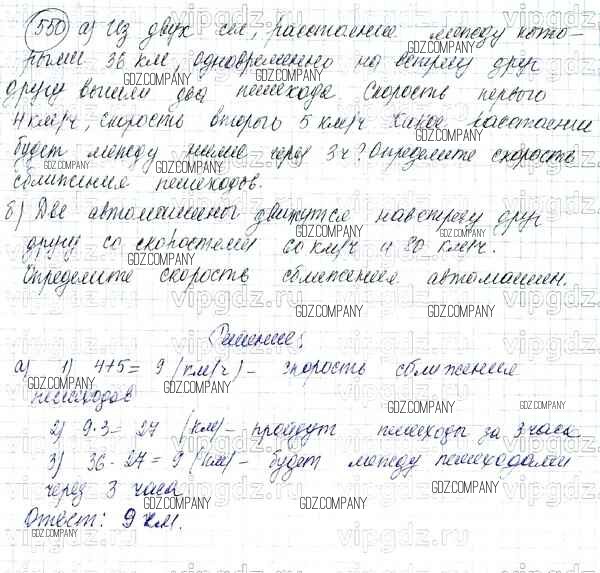 550 а) Из двух сел, расстояние между кото-
рыми 36 км, одновременно на встречу друг
другу вышли два пешехода. Скорость первого
4 км/ч, скорость второго 5 км/ч. Какое расстояние
будет между ними через 3 ч? Определите скорость
сближения пешеходов.
б) Две автомашины движутся навстречу друг
другу со скоростями 60 км/ч и 80 км/ч.
Определите скорость сближения автомашин.
Решение:
а) 1) 4+5= 9 (км/ч) - скорость сближения
пешеходов
2) 9·3= 27 (км) - пройдут пешеходы за 3 часа
3) 36-27=9 (км) - будет между пешеходами
через 3 часа
Ответ: 9 км.